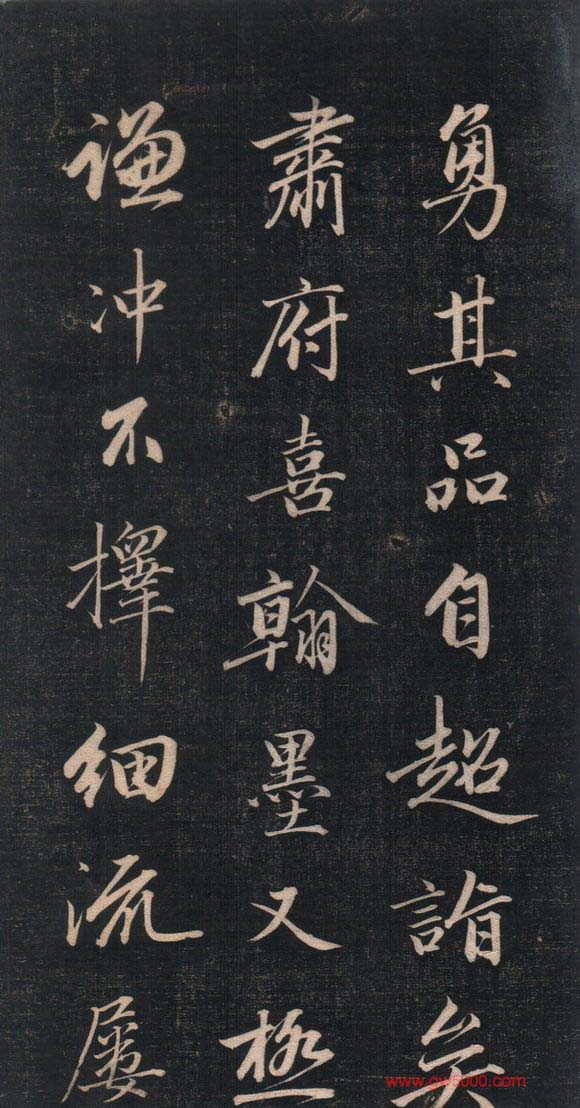 勇其品自超詣矣
肅府喜翰墨又極
謙冲不擇細流屢
www.gw5000.com